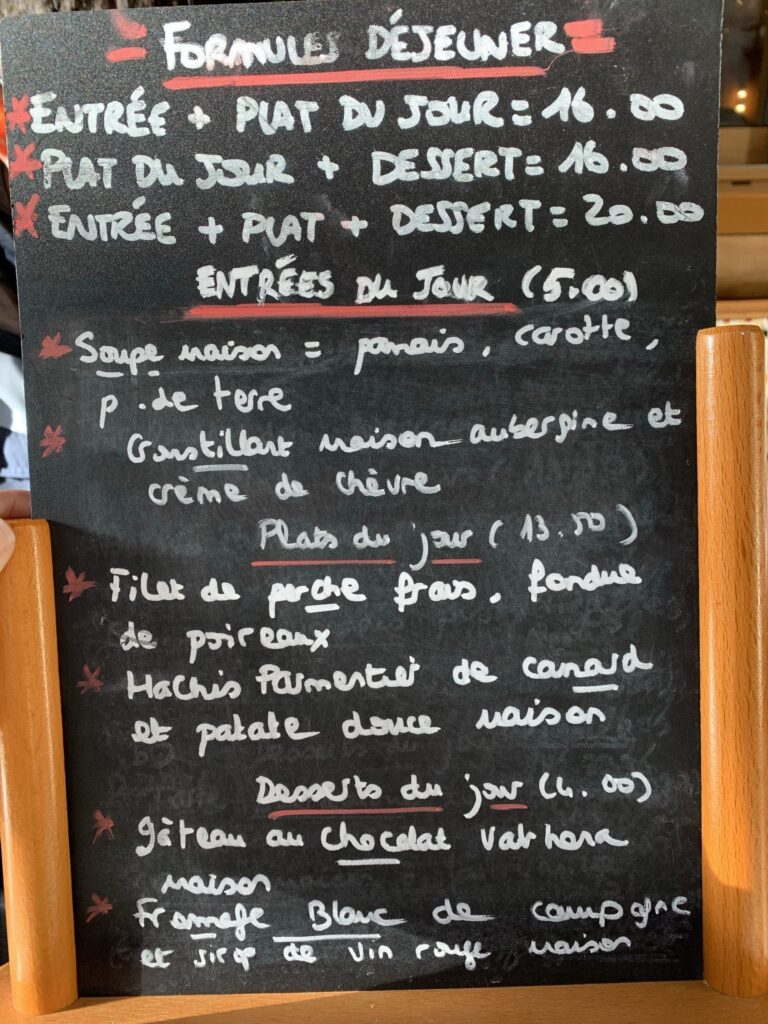 = FORMULES DÉJEUNER =
* ENTRÉE + PLAT DU JOUR = 16.00
* PLAT DU JOUR + DESSERT = 16.00
* ENTRÉE + PLAT + DESSERT = 20.00
ENTRÉES DU JOUR (5.00)
* Soupe maison = panais, carotte,
p. de terre
* Croustillant maison aubergine et
crème de chèvre
Plats du jour (13.50)
* Filet de perche frais, fondue
de poireaux
* Hachis Parmentier de canard
et patate douce maison
Desserts du jour (4.00)
* gâteau au chocolat Valrhona
maison
* Fromage Blanc de campagne
et sirop de vin rouge maison